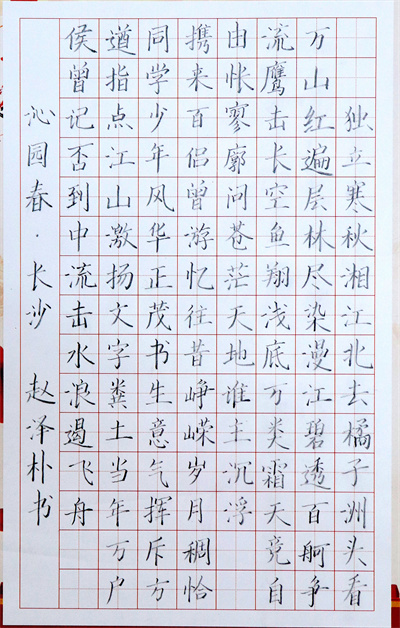 独立寒秋湘江北去橘子洲头看
万山红遍层林尽染漫江碧透百舸争
流鹰击长空鱼翔浅底万类霜天竞自
由怅寥廓问苍茫天地谁主沉浮
携来百侣曾游忆往昔峥嵘岁月稠恰
同学少年风华正茂书生意气挥斥方
遒指点江山激扬文字粪土当年万户
侯曾记否到中流击水浪遏飞舟
沁园春·长沙 赵泽朴书